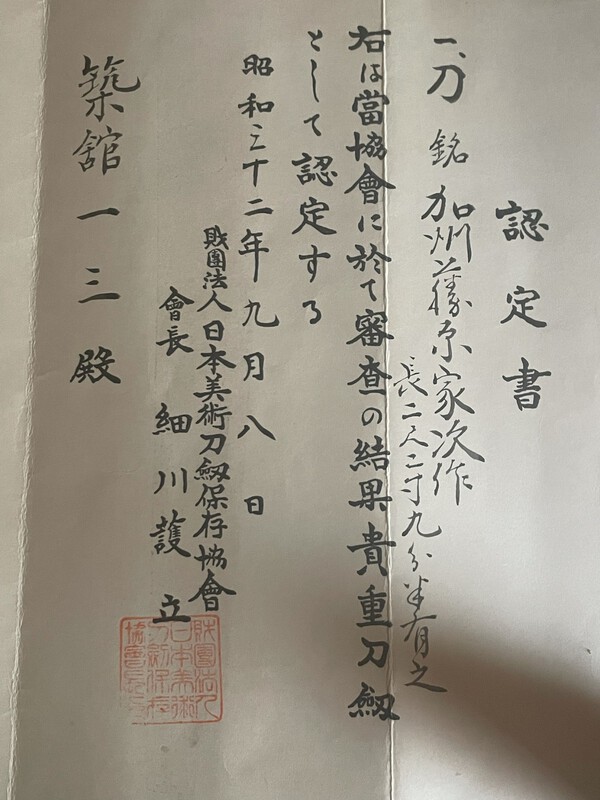 認定書
一、刀 銘 加州藤原家次作
長二尺二寸九分半有之
右は當協會に於て審査の結果貴重刀劔
として認定する
昭和三十二年九月八日
財團法人日本美術刀劔保存協會
會長 細川護立
築舘一三殿
財團法人日本美術刀劔保存協會長之印